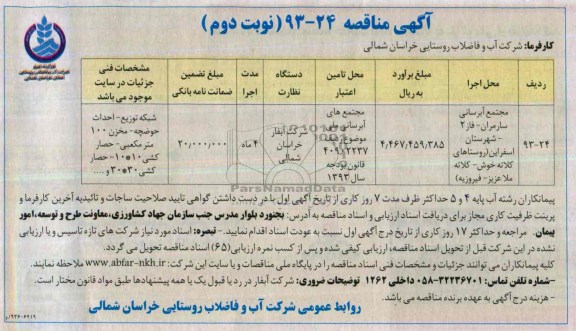 آگهی مناقصه ۲۴-۹۳ (نوبت دوم)
کارفرما: شرکت آب و فاضلاب روستایی خراسان شمالی
ردیف
محل اجرا
مبلغ برآورد به ریال
محل تامین اعتبار
دستگاه نظارت
مدت اجرا
مبلغ تضمین ضمانت نامه بانکی
مشخصات فنی جزئیات در سایت موجود می باشد
۹۳-۲۴
مجتمع آبرسانی سارمران- فاز ۲ - شهرستان اسفراین (روستاهای کلاته خوش- کلاته ملا عزیز- فیروزیه)
۴,۴۶۷,۴۵۹,۳۸۵
مجتمع های آبرسانی ملی موضوع ردیف ۴۰۹۱۲۲۳۷ قانون بودجه سال ۱۳۹۳
شرکت آبفار خراسان شمالی
۴ ماه
۲۰,۰۰۰,۰۰۰
شبکه توزیع- احداث حوضچه- مخزن ۱۰۰ متر مکعبی- حصار کشی ۱۰*۱۰- حصار کشی ۳۰*۳۰ و ....
پیمانکاران رشته آب پایه ۴ و ۵ حداکثر ظرف مدت ۷ روز کاری از تاریخ آگهی اول با در دست داشتن گواهی تایید صلاحیت ساجات و تائیدیه آخرین کارفرما و
پرینت ظرفیت کاری مجاز برای دریافت اسناد ارزیابی و اسناد مناقصه به آدرس: بجنورد بلوار مدرس جنب سازمان جهاد کشاورزی، معاونت طرح و توسعه، امور
پیمان. مراجعه و حداکثر ۱۷ روز کاری از تاریخ درج آگهی اول نسبت به عودت اسناد اقدام نمایید. - تبصره: اسناد مورد نیاز شرکت های تازه تاسیس و یا ارزیابی
نشده در این شرکت قبل از تحویل اسناد مناقصه، ارزیابی کیفی شده و پس از کسب نمره ارزیابی (۶۵) اسناد مناقصه تحویل می گردد.
کلیه پیمانکاران می توانند جزئیات و مشخصات فنی اسناد مناقصه را در پایگاه ملی مناقصات و یا سایت این شرکت: www.abfar-nkh.ir ملاحظه نمایند.
-شماره تلفن تماس: ۳۲۲۳۶۷۰۱-۰۵۸ داخلی ۱۲۶۲ توضیحات ضروری: شرکت آبفار در رد یا قبول یک یا همه پیشنهادها طبق مواد قانون مختار است.
- هزینه درج آگهی به عهده برنده مناقصه می باشد.
روابط عمومی شرکت آب و فاضلاب روستایی خراسان شمالی
ParsNamadData